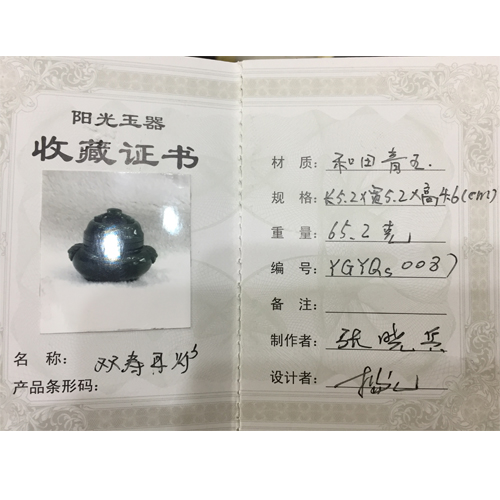 阳光玉器
收藏证书
名 称: 双寿丹炉
产品条形码:
材 质: 和田青玉.
规 格: 长5.2X宽5.2X高4.6(cm)
重 量: 65.2克
编 号: YGYQs0037
备 注:
制作者: 张晓兵
设计者: